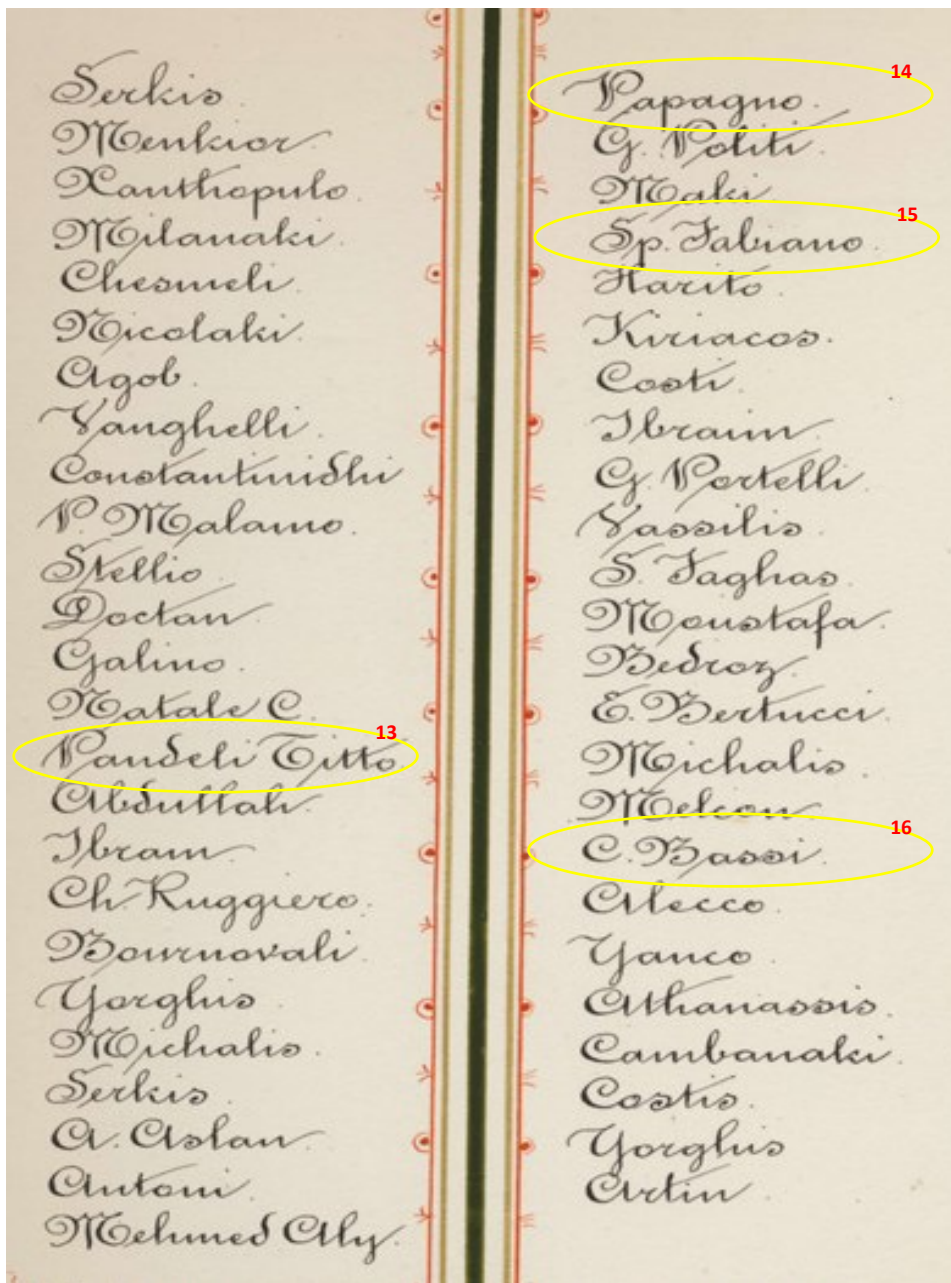 Serkis.
Menkior.
Xanthopulo.
Milanaki.
Chesmeli.
Nicolaki.
Agob.
Vanghelli.
Constantinidhi
P. Malamo.
Stellio.
Doctan.
Galino.
Natale C.
13
Pandeli Titto.
Abdullah.
Ibram.
Ch. Ruggiero.
Bournovali.
Yorghis.
Michalis.
Serkis.
A. Aslan.
Antoni.
Mehmed Aly.
14
Papagno.
G. Politi.
Maki.
15
Sp. Fabiano.
Harito.
Kiriacos.
Costi.
Ibraim.
G. Portelli.
Vassilis.
S. Faghas.
Moustafa.
Bedroz.
E. Bertucci.
Michalis.
Melcon.
16
C. Bassi.
Alecco.
Yanco.
Athanassis.
Cambanaki.
Costis.
Yorghis
Artin.